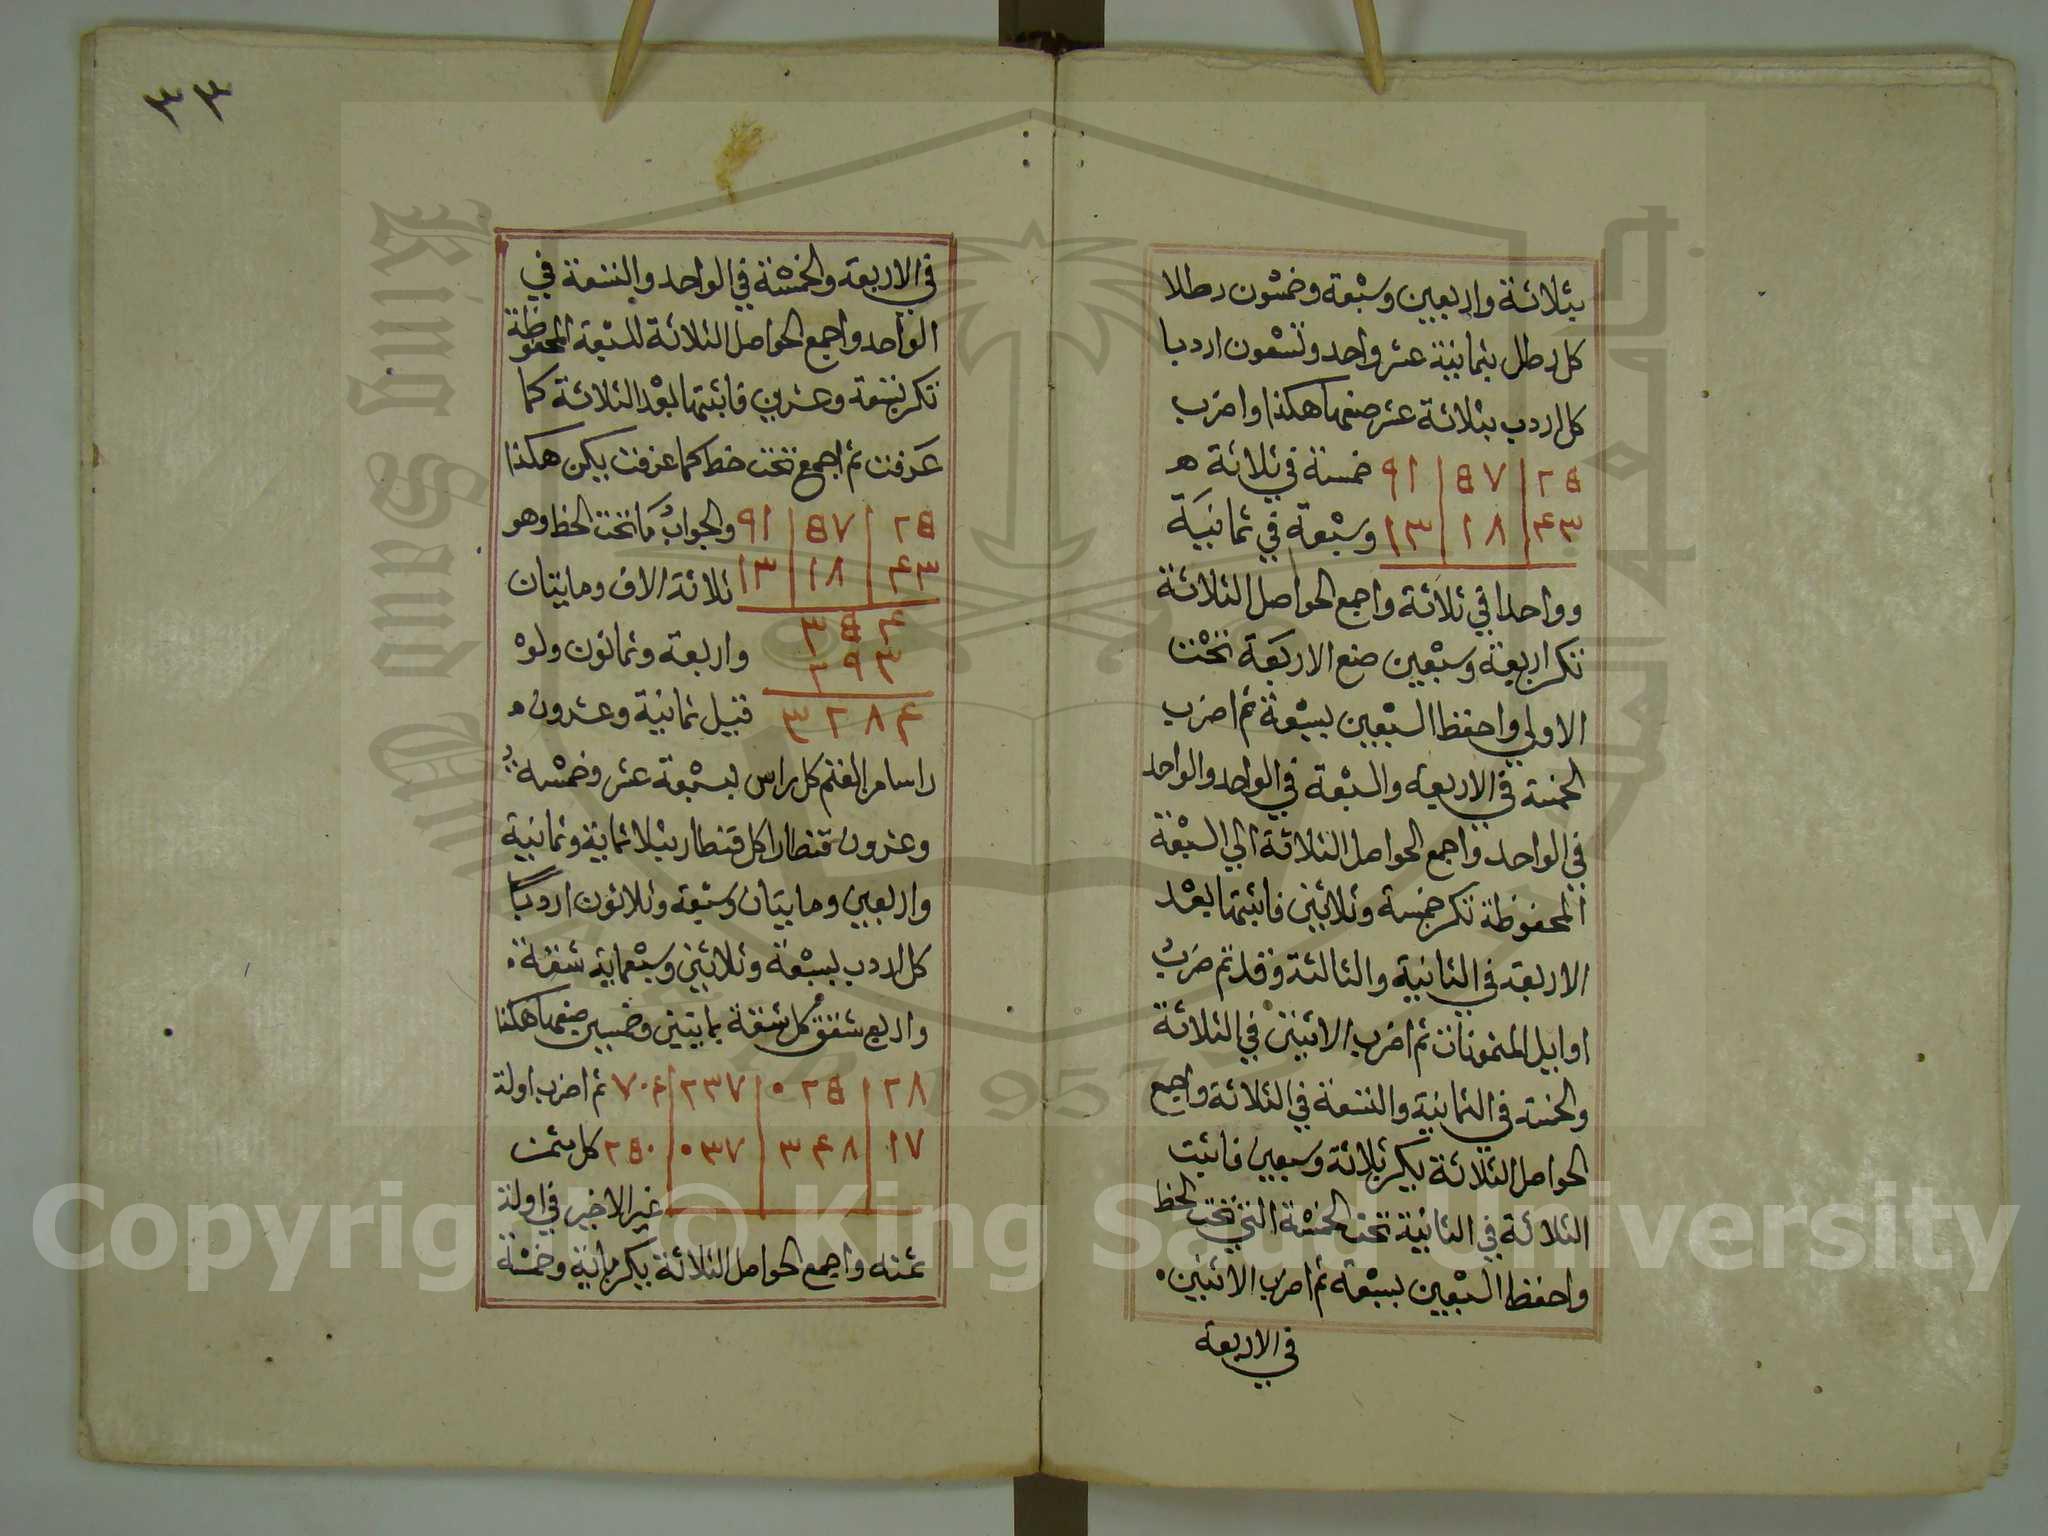 بثلاثة واربعين وسبعة وخمسون رطلا
كل رطل بثمانية عشر واحد وتسعون اردبا
كل اردب بثلاثة عشر ضعها هكذا واضرب
٢٥ | ٥٧ | ٩١ خمسة في ثلاثة ه
٤٣ | ١٨ | ١٣ وسبعة في ثمانية
وواحدا في ثلاثة واجمع الحواصل الثلاثة
تكن اربعة وسبعين ضع الاربعة تحت
الاولي واحفظ السبعين بسبعة ثم اضرب
الخمسة في الاربعة والسبعة في الواحد والواحد
في الواحد واجمع الحواصل الثلاثة الي السبعة
المحفوظة تكن خمسة وثلاثين فاثبتها بعد
الاربعة في الثانية والثالثة وقد تم ضرب
اوايل المثمونات ثم اضرب الاثنين في الثلاثة
والخمسة في الثمانية والتسعة في الثلاثة واجمع
الحواصل الثلاثة يكن ثلاثة وسبعين فاثبت
الثلاثة في الثانية تحت الخمسة التي تحت الخط
واحفظ السبعين بسبعة ثم اضرب الاثنين
في الاربعة
٣٣
في الاربعة والخمسة في الواحد والتسعة في
الواحد واجمع الحواصل الثلاثة للسبعة المحفوظة
تكن تسعة وعشرين فاثبتها بعد الثلاثة كما
عرفت ثم اجمع تحت خط كما عرفت يكن هكذا
٢٥ | ٥٧ | ٩١ والجواب ما تحت الخط وهو
٤٣ | ١٨ | ١٣ ثلاثة الاف ومايتان
٣٥٤
٢٩٣ واربعة وثمانون ولو
٣٢٨٤ قيل ثمانية وعشرون
راسا من الغنم كل راس بسبعة عشر وخمسة
وعشرون قنطارا كل قنطار بثلاثماية وثمانية
واربعين ومايتان وسبعة وثلاثون اردبا
كل اردب بسبعة وثلاثين وسبعماية شقة
واربع شقق كل شقة بمايتين وخمسين ضعها هكذا
٢٨ | ٠٢٥ | ٢٣٧ | ٧٠٤ ثم اضرب اولة
١٧ | ٣٤٨ | ٠٣٧ | ٢٥٠ كل مثمن
غير الاخير في اولة
ثمنه واجمع الحواصل الثلاثة يكن ماية وخمسة
Copyright © King Saud University
King Saud University
1957